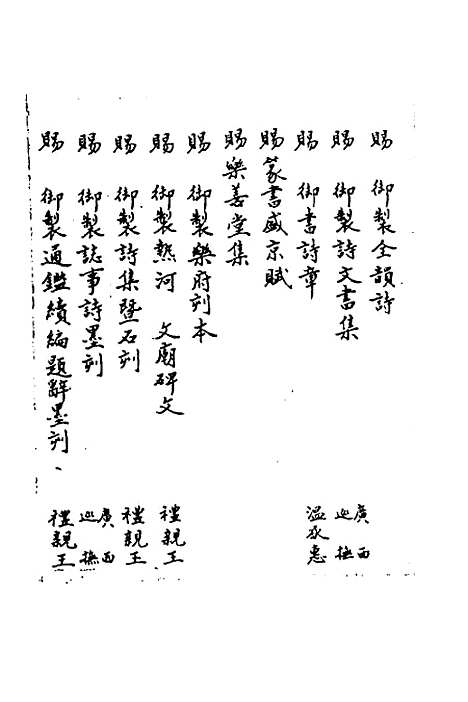 賜　御製全韻詩
賜　御製詩文書集　廣西巡撫
賜　御書詩章　溫承惠
賜篆書盛京賦
賜樂善堂集
賜　御製樂府刻本
賜　御製熱河　文廟碑文　禮親王
賜　御製詩集暨石刻　禮親王
賜　御製誌事詩墨刻　廣西巡撫
賜　御製通鑑續編題辭墨刻、　禮親王